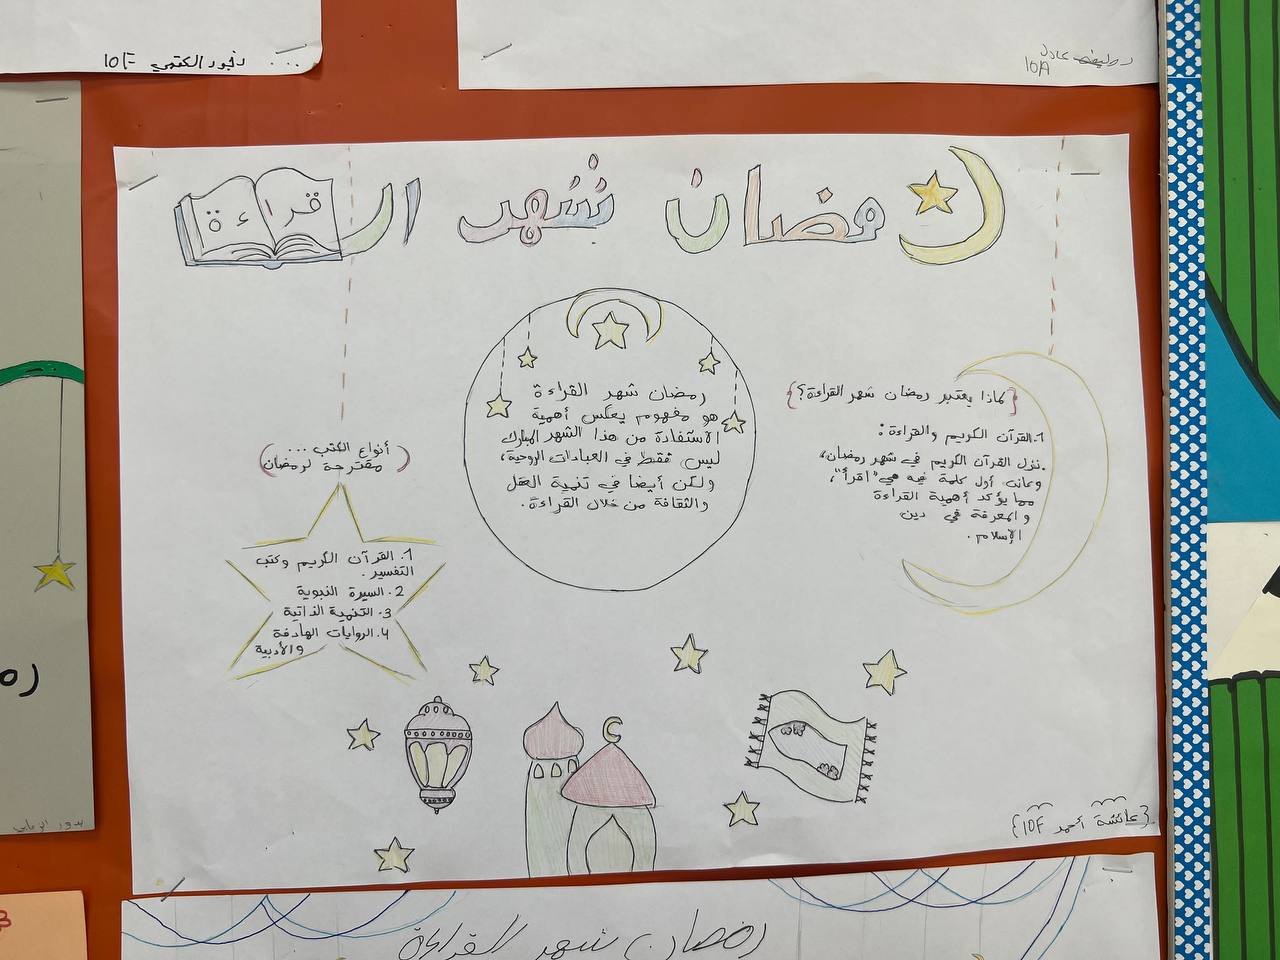 دجور الكتبي 10F
عادل
10A
رمضان شهر القراءة
رمضان شهر القراءة
هو مفهوم يعكس أهمية
الاستفادة من هذا الشهر المبارك
ليس فقط في العبادات الروحية،
ولكن أيضا في تنمية العقل
والثقافة من خلال القراءة.
{لماذا يعتبر رمضان شهر القراءة؟}
1. القرآن الكريم والقراءة:
.نزل القرآن الكريم في شهر رمضان،
وكانت أول كلمة فيه هي "اقرأ"،
مما يؤكد أهمية القراءة
و المعرفة في دين
الإسلام.
(أنواع الكتب ...
مقترحة لرمضان)
1. القرآن الكريم وكتب
التفسير.
2. السيرة النبوية
3. التنمية الذاتية
4. الروايات الهادفة
والأدبية
{عائشة أحمد 10F}
رمضان شهر القراءة